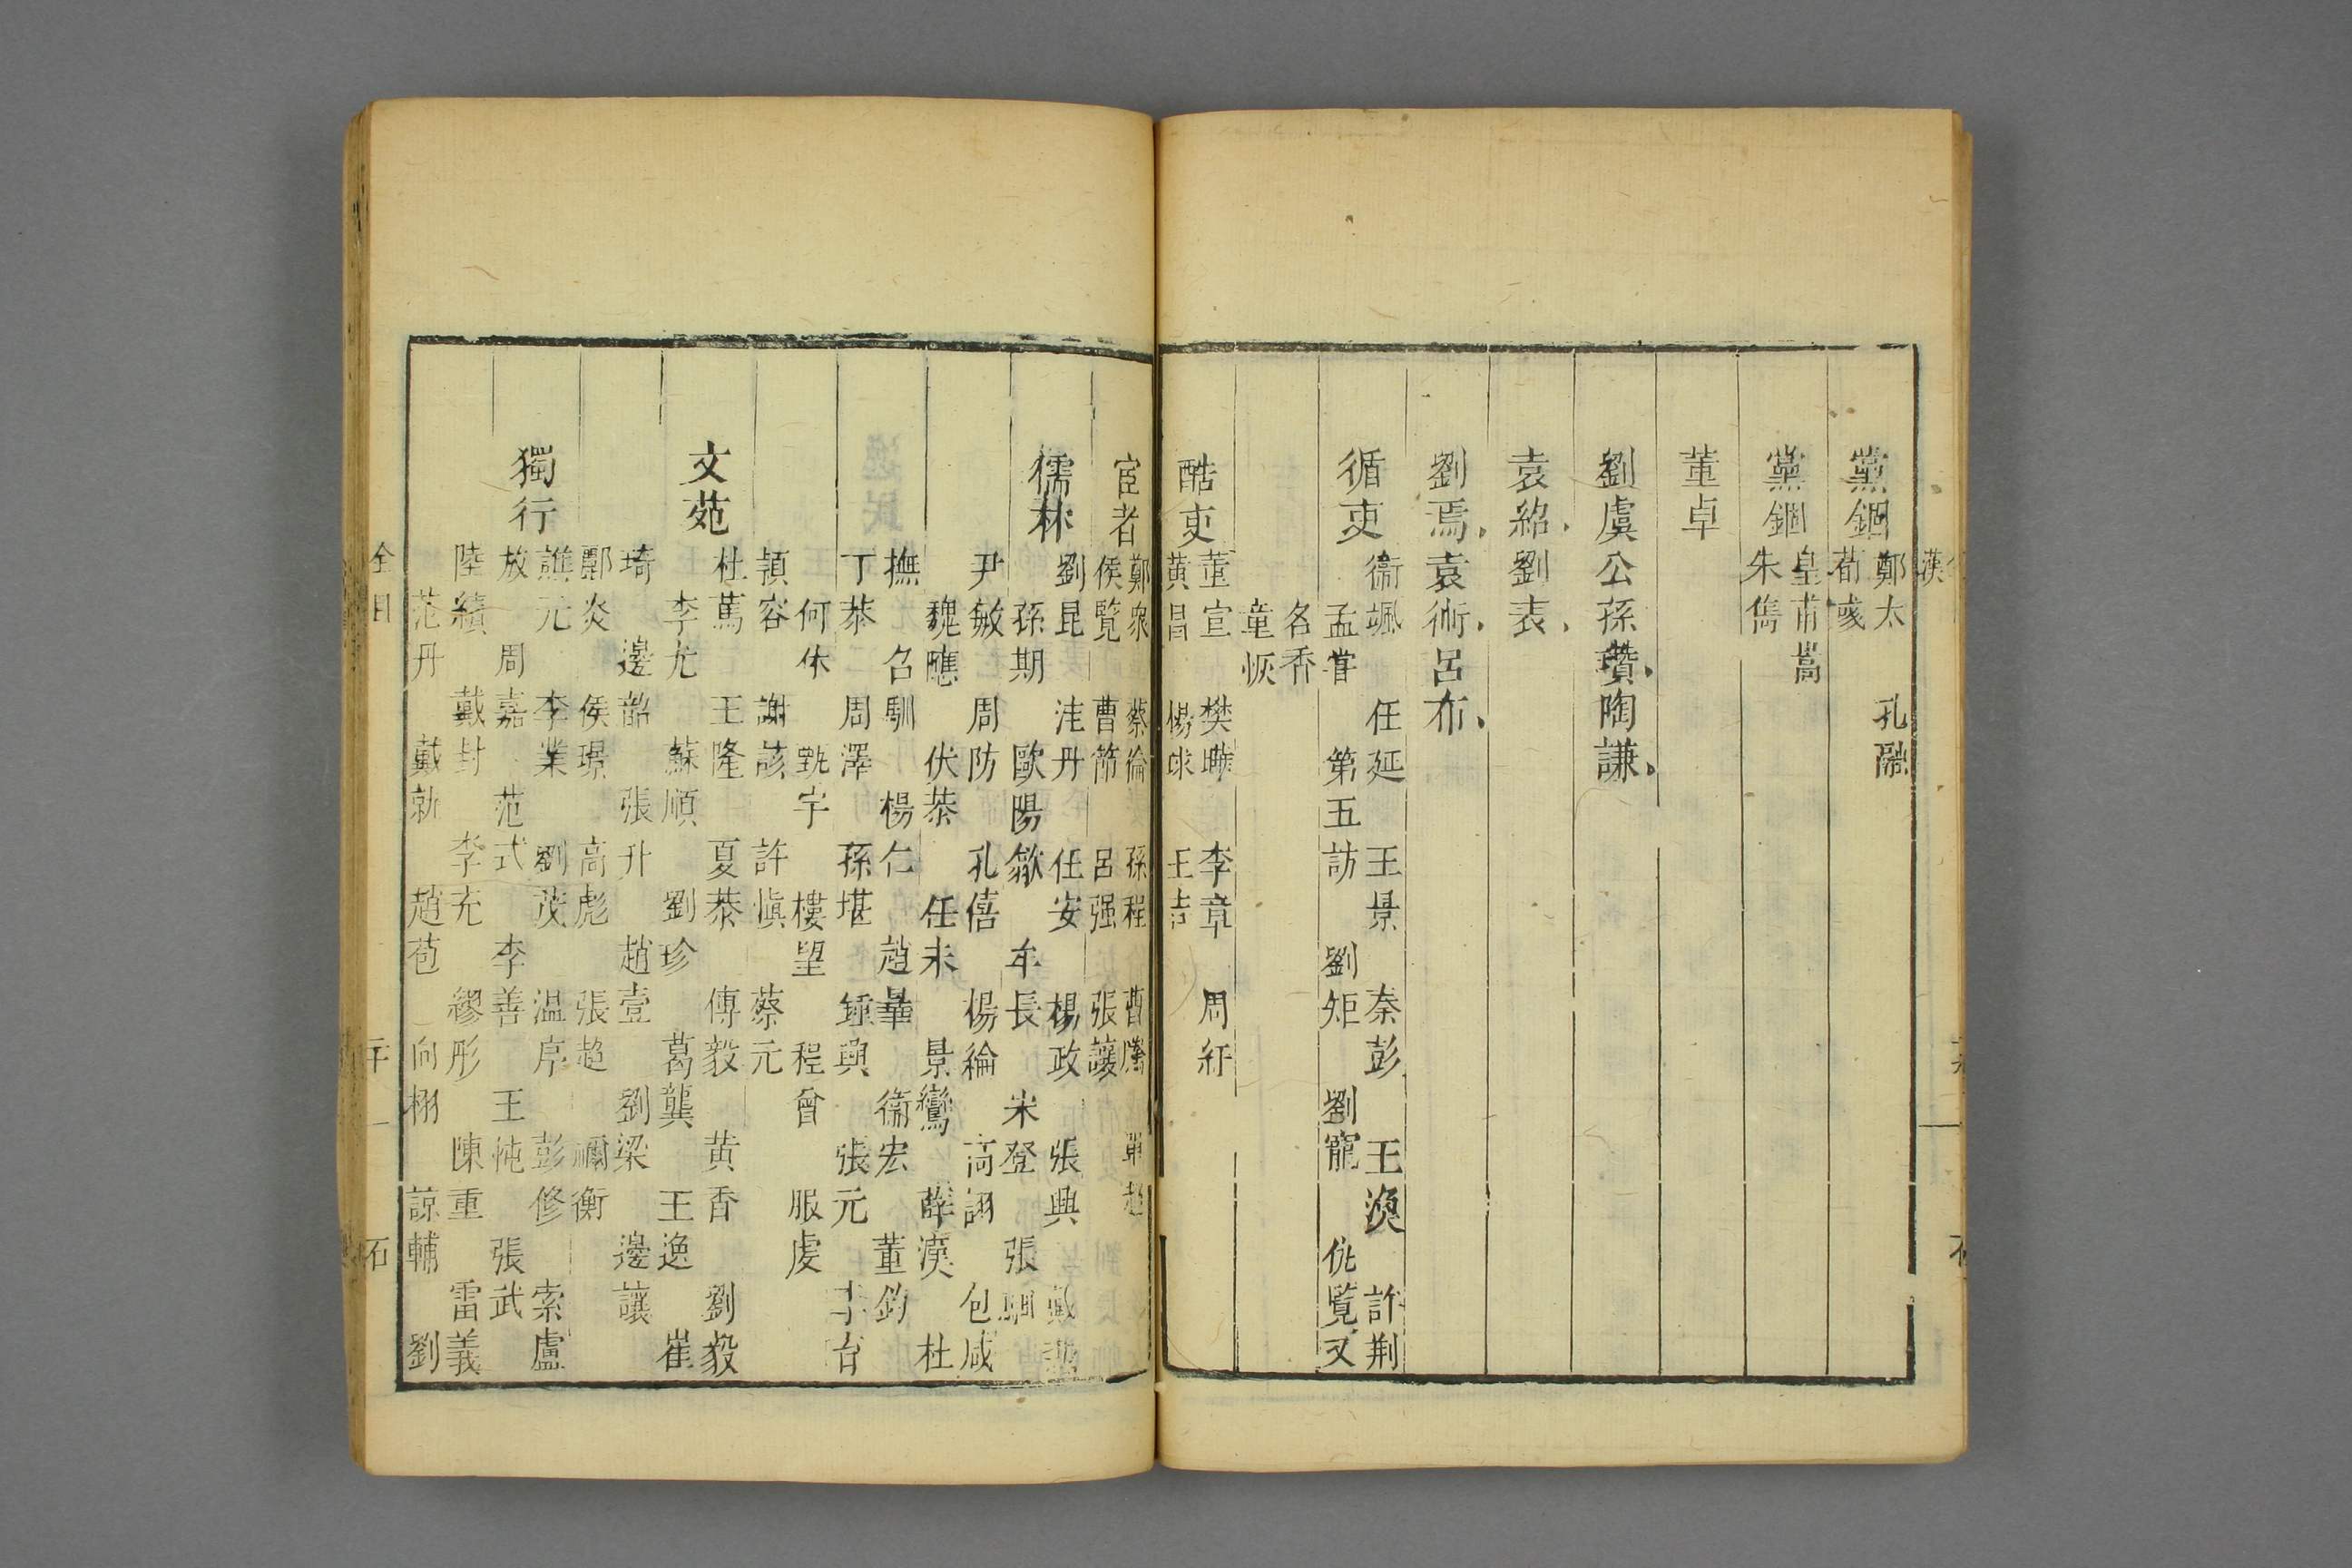 漢
黨錮 鄭太 孔融
荀彧
黨錮 皇甫嵩
朱儁
董卓
劉虞公孫瓚陶謙
袁紹劉表
劉焉袁術呂布
循吏 衞颯 任延 王景 秦彭 王渙 許荆
孟甞 第五訪 劉矩 劉寵 仇覽又
名香
童恢
酷吏 董宣 樊曄 李章 周紆
黄昌 楊球 王吉
宦者 鄭衆 蔡倫 孫程 曹騰 單超
侯覽 曹節 呂强 張讓
儒林 劉昆 洼丹 任安 楊政 張興 戴憑
孫期 歐陽歙 牟長 宋登 張馴
尹敏 周防 孔僖 楊綸 高詡 包咸
魏應 伏恭 任末 景鸞 薛漢 杜
撫 召馴 楊仁 趙曄 衞宏 董鈞
丁恭 周澤 孫堪 鍾興 張元 李育
何休 甄宇 樓望 程曾 服虔
頴容 謝該 許慎 蔡元
文苑 杜篤 王隆 夏恭 傅毅 黄香 劉毅
李尤 蘇順 劉珍 葛龔 王逸 崔
琦 邊韶 張升 趙壹 劉梁 邊讓
酈炎 侯瑾 高彪 張超 禰衡
獨行 譙元 李業 劉茂 温序 彭修 索盧
放 周嘉 范式 李善 王忳 張武
陸績 戴封 李充 繆彤 陳重 雷義
范丹 戴就 趙苞 向栩 諒輔 劉
全目 石